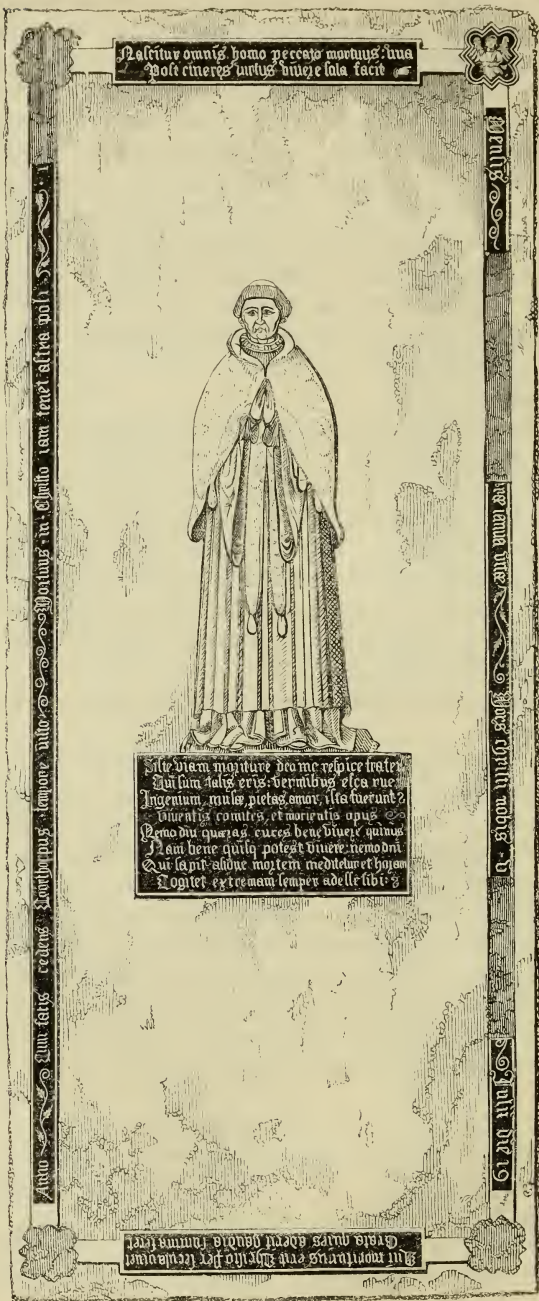 Nascitur omnis homo peccato mortuus: una
Post cineres virtus vivere sola facit
Mentis
ianua vite Mors nobis
Julii die 19
moriturus erit per secula
Grata quies aderit gaudia summa feret
Anno Cum fatis cedens tempore iusto Mortuus in Christo iam tenet astra poli
Siste viam moriture deo me respice frater
Qui sum talis eris: vermibus esca rue,
Ingenium, musæ, pietas, amor, ista fuerunt
Viventis comites, et morientis opus
Nemo diu quæras, cures bene vivere quivis
Nam bene quisq potest vivere: nemo diu
Qui sapit assidue mortem meditetur et horam
Cogitet extremam semper adesse sibi: